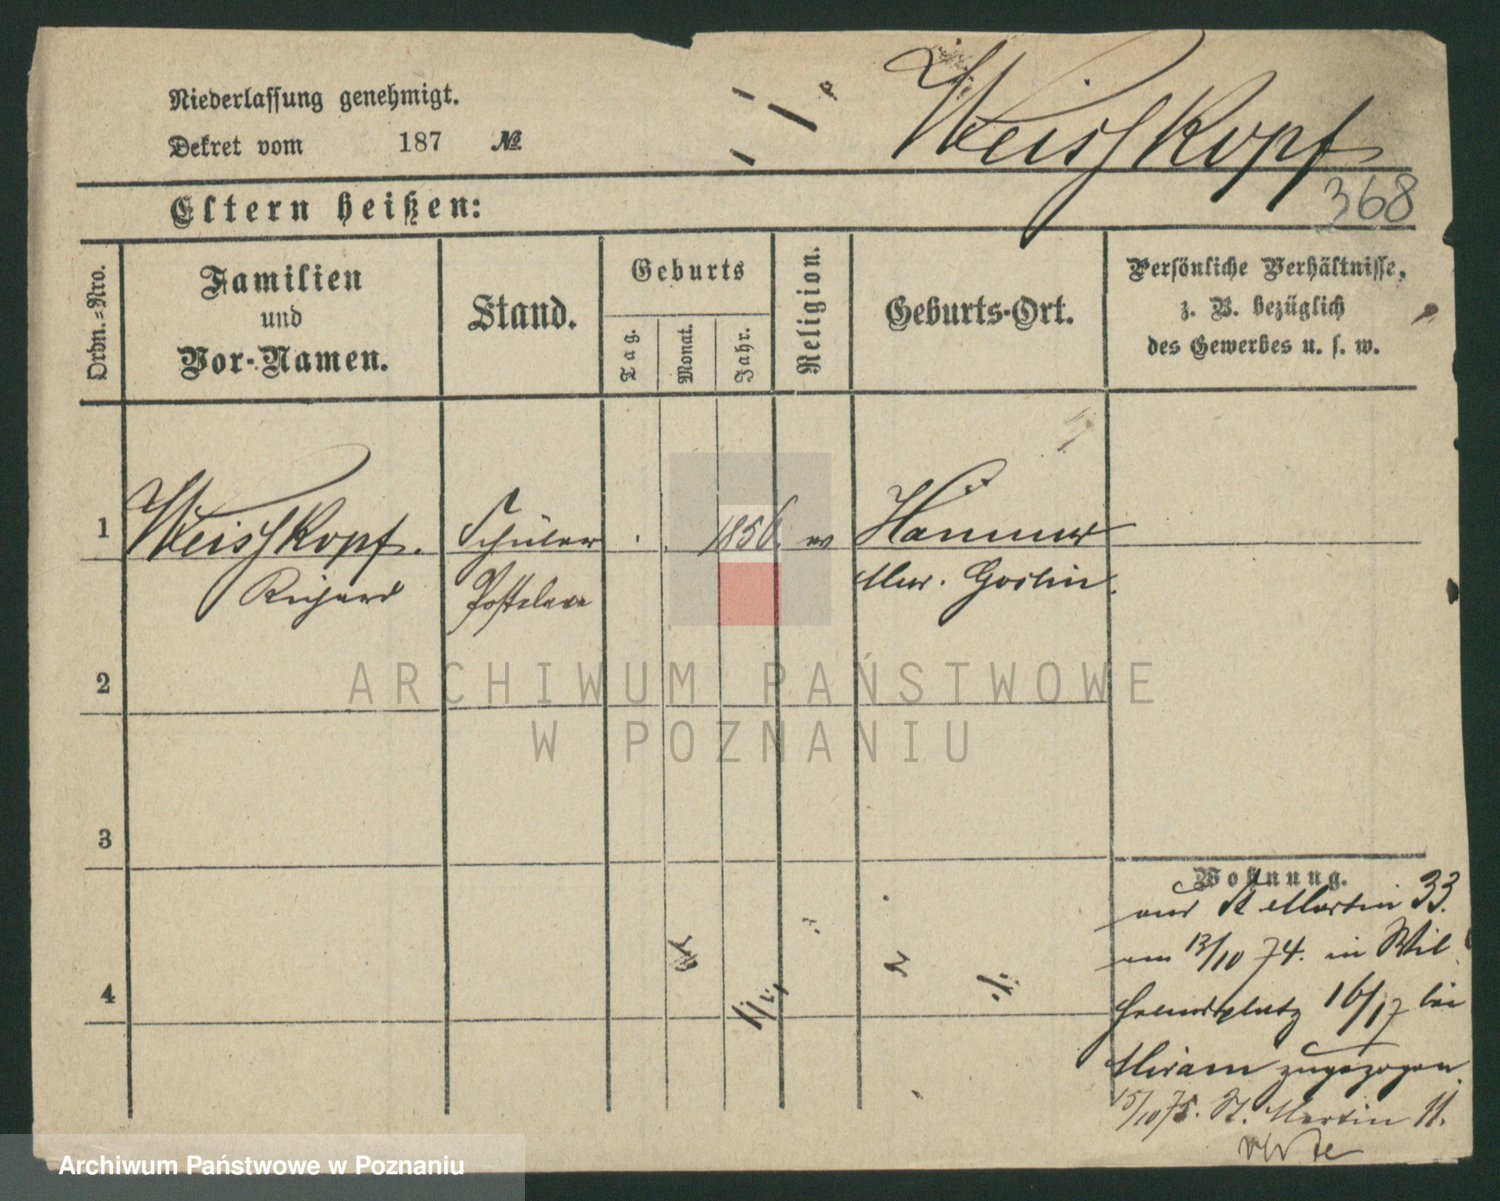 Niederlassung genehmigt.
Dekret vom 187 №
Weisskopf
368
Eltern heißen:
Ordn.=Nro.
Familien
und
Vor-Namen.
Stand.
Geburts
Tag.
Monat.
Jahr.
Religion.
Geburts-Ort.
Persönliche Verhältnisse,
z. B. bezüglich
des Gewerbes u. s. w.
1 Weisskopf. Schüler 1856
Richard Posteleve Mur. Goslin.
2
3
4
Wohnung.
St Martin 33.
am 13/10 74. in Wil
helmsplatz 16/17 bei
zugezogen.
15/10 75. St. Martin 11.
ARCHIWUM PAŃSTWOWE
W POZNANIU
Archiwum Państwowe w Poznaniu